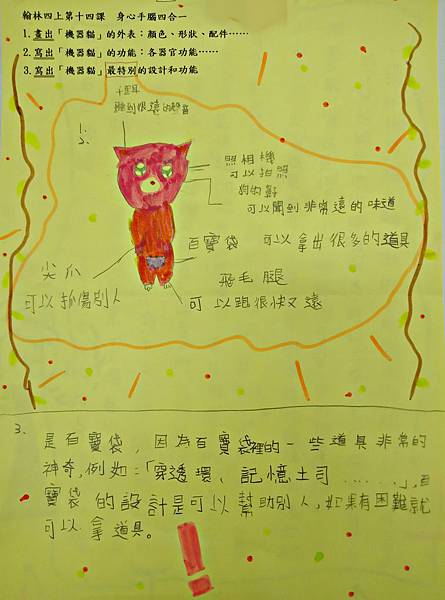 翰林四上第十四課　身心手腦四合一
1. 畫出「機器貓」的外表：顏色、形狀、配件……
2. 寫出「機器貓」的功能：各器官功能……
3. 寫出「機器貓」最特別的設計和功能
千里耳
聽到很遠的聲音
1.
2.
照相機
可以拍照
狗的鼻
可以聞到非常遠的味道
百寶袋　可以拿出很多的道具
尖爪
可以抓傷別人
飛毛腿
可以跑很快又遠
3.
是百寶袋，因為百寶袋裡的一些道具非常的
神奇，例如：「穿透環、記憶土司……」，百
寶袋的設計是可以幫助別人，如果有困難就
可以拿道具。